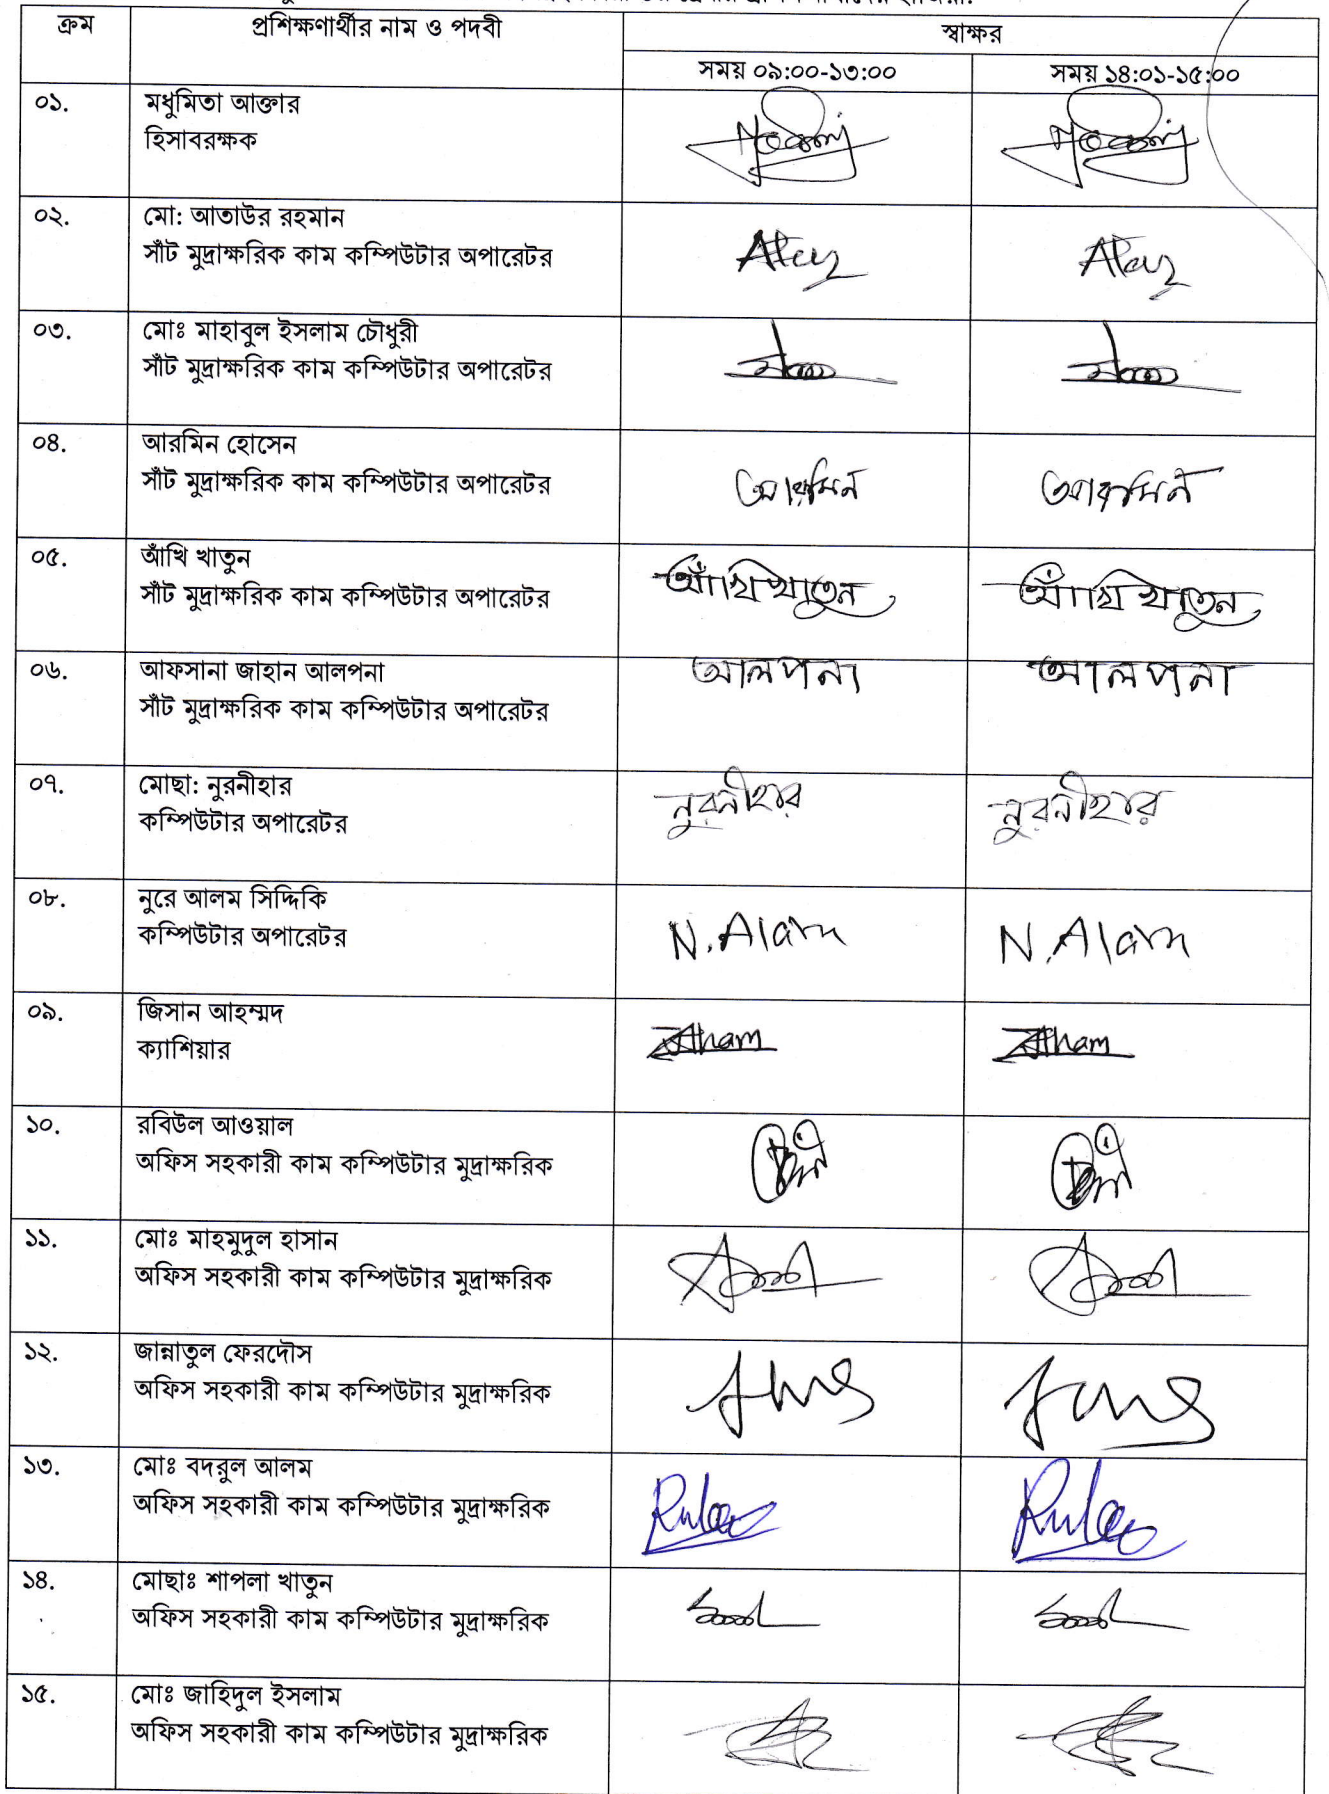 ক্রম প্রশিক্ষণার্থীর নাম ও পদবী স্বাক্ষর
সময় ০৯:০০-১৩:০০ সময় ১৪:০১-১৫:০০
০১. মধুমিতা আক্তার
হিসাবরক্ষক
০২. মো: আতাউর রহমান
সাঁট মুদ্রাক্ষরিক কাম কম্পিউটার অপারেটর
০৩. মোঃ মাহাবুল ইসলাম চৌধুরী
সাঁট মুদ্রাক্ষরিক কাম কম্পিউটার অপারেটর
০৪. আরমিন হোসেন
সাঁট মুদ্রাক্ষরিক কাম কম্পিউটার অপারেটর আরমিন আরমিন
০৫. আঁখি খাতুন
সাঁট মুদ্রাক্ষরিক কাম কম্পিউটার অপারেটর আঁখি খাতুন আঁখি খাতুন
০৬. আফসানা জাহান আলপনা আলপনা আলপনা
সাঁট মুদ্রাক্ষরিক কাম কম্পিউটার অপারেটর
০৭. মোছা: নুরনীহার নুরনীহার নুরনীহার
কম্পিউটার অপারেটর
০৮. নুরে আলম সিদ্দিকি
কম্পিউটার অপারেটর N. Alam N. Alam
০৯. জিসান আহম্মদ
ক্যাশিয়ার
১০. রবিউল আওয়াল
অফিস সহকারী কাম কম্পিউটার মুদ্রাক্ষরিক
১১. মোঃ মাহমুদুল হাসান
অফিস সহকারী কাম কম্পিউটার মুদ্রাক্ষরিক
১২. জান্নাতুল ফেরদৌস
অফিস সহকারী কাম কম্পিউটার মুদ্রাক্ষরিক
১৩. মোঃ বদরুল আলম
অফিস সহকারী কাম কম্পিউটার মুদ্রাক্ষরিক
১৪. মোছাঃ শাপলা খাতুন
অফিস সহকারী কাম কম্পিউটার মুদ্রাক্ষরিক
১৫. মোঃ জাহিদুল ইসলাম
অফিস সহকারী কাম কম্পিউটার মুদ্রাক্ষরিক